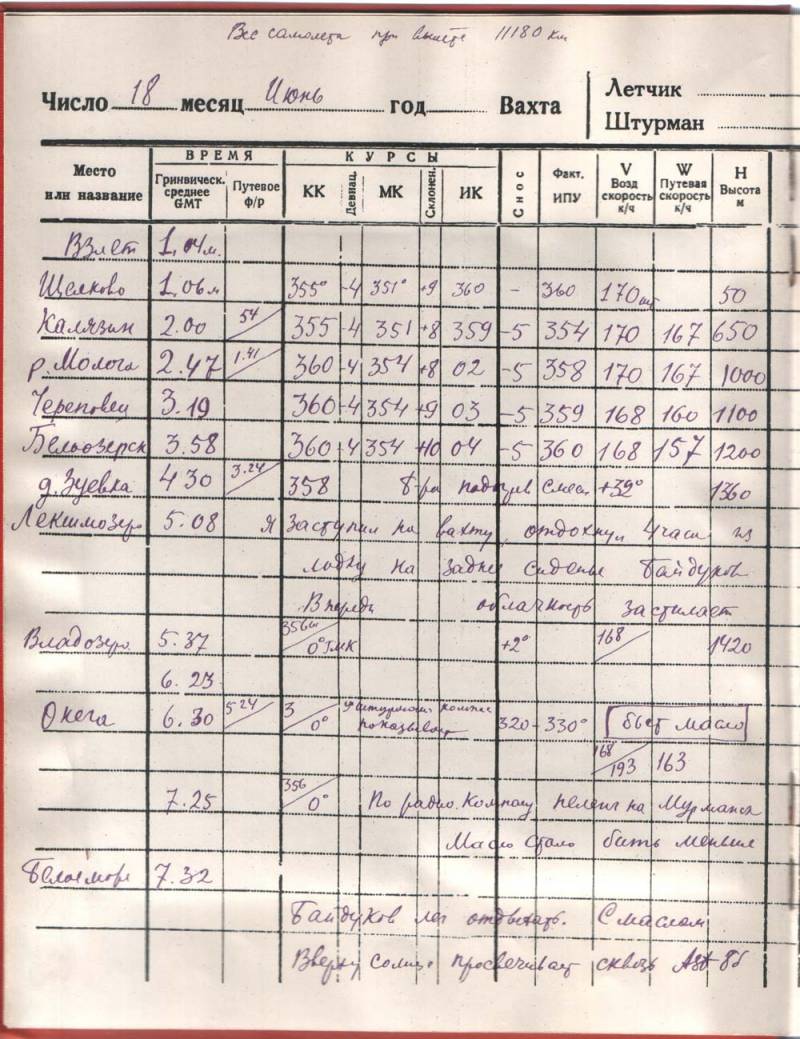 Вес самолета при вылете 11180 км
Число 18 месяц Июнь год Вахта Летчик
Штурман
Место или название ВРЕМЯ Гринвическ. среднее GMT Путевое ф/р КУРСЫ КК Девиац. МК Склонен. ИК Снос Факт. ИПУ V Возд скорость к/ч W Путевая скорость к/ч H Высота м
Взлет 1,04м.
Щелково 1,06м 355° -4 351° +9 360 - 360 170 50
Калязин 2.00 54 355 -4 351 +8 359 -5 354 170 167 650
р. Молога 2.47 1.41 360 -4 354 +8 02 -5 358 170 167 1000
Череповец 3.19 360 -4 354 +9 03 -5 359 168 160 1100
Белоозерск 3.58 360 -4 354 +10 04 -5 360 168 157 1200
д. Зуевка 4 30 3.24 358 т-ра подогрев смеси +32° 1360
Лекшмозеро 5.08 Я заступил на вахту, отдохнул 4 часа из
на заднее сиденье Байдуков
Впереди облачность застилает
Владозеро 5.37 356 0° ГМК +2° 168 1420
6.23
Онега 6.30 5 24 3 0° Штурманск компас показывает 320-330° бьет масло
168 193 163
7.25 356 0° По радио. компасу пеленг на Мурманск
Масло стало бить меньше
Белое море 7.32
Байдуков лег отдыхать. С маслом
Вверху солнце просвечивает сквозь Ast